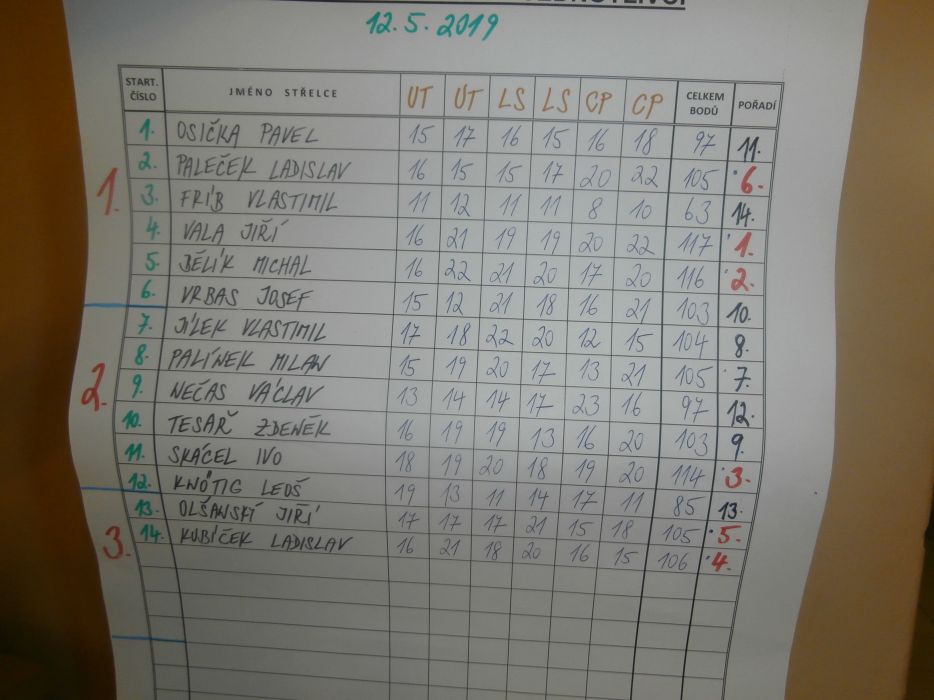 12.5.2019
START. ČÍSLO JMÉNO STŘELCE ÚT ÚT LS LS CP CP CELKEM BODŮ POŘADÍ
1. OSIČKA PAVEL 15 17 16 15 16 18 97 11.
2. PALEČEK LADISLAV 16 15 15 17 20 22 105 6.
1. 3. FRÍB VLASTIMIL 11 12 11 11 8 10 63 14.
4. VALA JIŘÍ 16 21 19 19 20 22 117 1.
5. BĚLÍK MICHAL 16 22 21 20 17 20 116 2.
6. VRBAS JOSEF 15 12 21 18 16 21 103 10.
7. JÍLEK VLASTIMIL 17 18 22 20 12 15 104 8.
8. PALÍNEK MILAN 15 19 20 17 13 21 105 7.
2. 9. NEČAS VÁCLAV 13 14 14 17 23 16 97 12.
10. TESAŘ ZDENĚK 16 19 19 13 16 20 103 9.
11. SKÁČEL IVO 18 19 20 18 19 20 114 3.
12. KNÖTIG LEOŠ 19 13 11 14 17 11 85 13.
13. OLŠANSKÝ JIŘÍ 17 17 17 21 15 18 105 5.
3. 14. KUBÍČEK LADISLAV 16 21 18 20 16 15 106 4.